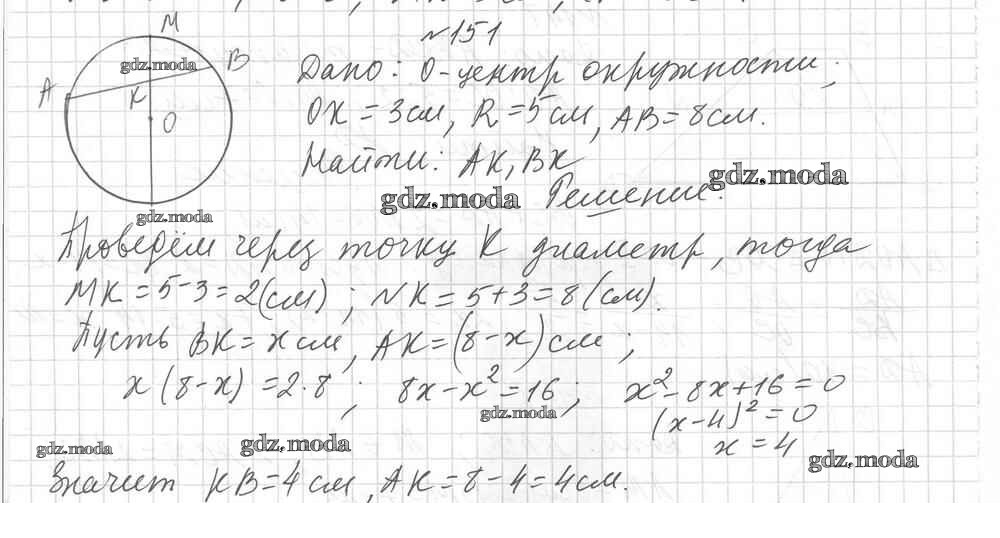 №151
M
B
A
K
O
Дано: О-центр окружности;
OK = 3см, R = 5см, AB = 8см.
Найти: AK, BK
Решение:
Проведём через точку K диаметр, тогда
MK = 5-3 = 2(см); NK = 5+3 = 8(см).
Пусть BK = x см, AK = (8-x) см;
x(8-x) = 2·8; 8x-x² = 16; x²-8x+16 = 0
(x-4)² = 0
x = 4
Значит KB = 4 см, AK = 8-4 = 4см.
gdz.moda
gdz.moda
gdz.moda
gdz.moda
gdz.moda
gdz.moda
gdz.moda
gdz.moda